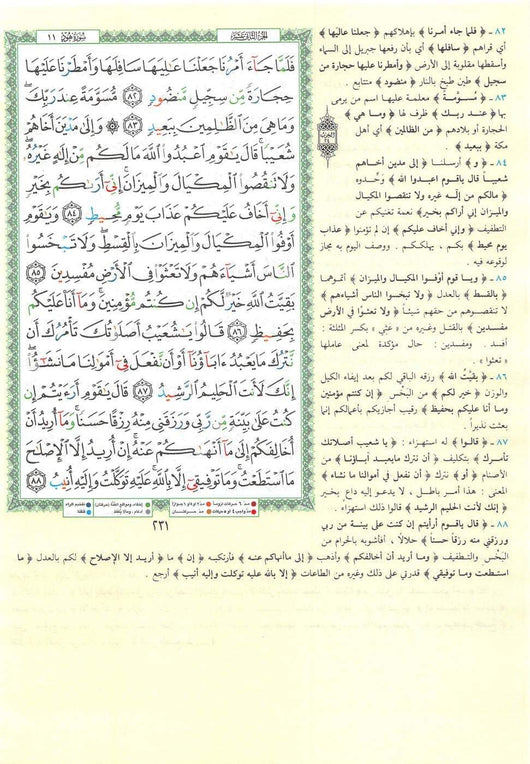 سُورَةُ هُودٍ ١١
الجزء الثاني عشر
فَلَمَّا جَآءَ أَمْرُنَا جَعَلْنَا عَٰلِيَهَا سَافِلَهَا وَأَمْطَرْنَا عَلَيْهَا
حِجَارَةً مِّن سِجِّيلٍ مَّنضُودٍ ٨٢ مُّسَوَّمَةً عِندَ رَبِّكَ ۖ
وَمَا هِىَ مِنَ ٱلظَّٰلِمِينَ بِبَعِيدٍ ٨٣ ۞ وَإِلَىٰ مَدْيَنَ أَخَاهُمْ
شُعَيْبًا ۚ قَالَ يَٰقَوْمِ ٱعْبُدُوا۟ ٱللَّهَ مَا لَكُم مِّنْ إِلَٰهٍ غَيْرُهُۥ ۖ
وَلَا تَنقُصُوا۟ ٱلْمِكْيَالَ وَٱلْمِيزَانَ ۚ إِنِّىٓ أَرَىٰكُم بِخَيْرٍ
وَإِنِّىٓ أَخَافُ عَلَيْكُمْ عَذَابَ يَوْمٍ مُّحِيطٍ ٨٤ وَيَٰقَوْمِ
أَوْفُوا۟ ٱلْمِكْيَالَ وَٱلْمِيزَانَ بِٱلْقِسْطِ ۖ وَلَا تَبْخَسُوا۟
ٱلنَّاسَ أَشْيَآءَهُمْ وَلَا تَعْثَوْا۟ فِى ٱلْأَرْضِ مُفْسِدِينَ ٨٥
بَقِيَّتُ ٱللَّهِ خَيْرٌ لَّكُمْ إِن كُنتُم مُّؤْمِنِينَ ۚ وَمَآ أَنَا۠ عَلَيْكُم
بِحَفِيظٍ ٨٦ قَالُوا۟ يَٰشُعَيْبُ أَصَلَوٰتُكَ تَأْمُرُكَ أَن
نَّتْرُكَ مَا يَعْبُدُ ءَابَآؤُنَآ أَوْ أَن نَّفْعَلَ فِىٓ أَمْوَٰلِنَا مَا نَشَٰٓؤُا۟ ۖ
إِنَّكَ لَأَنتَ ٱلْحَلِيمُ ٱلرَّشِيدُ ٨٧ قَالَ يَٰقَوْمِ أَرَءَيْتُمْ إِن
كُنتُ عَلَىٰ بَيِّنَةٍ مِّن رَّبِّى وَرَزَقَنِى مِنْهُ رِزْقًا حَسَنًا ۚ وَمَآ أُرِيدُ أَنْ
أُخَالِفَكُمْ إِلَىٰ مَآ أَنْهَىٰكُمْ عَنْهُ ۚ إِنْ أُرِيدُ إِلَّا ٱلْإِصْلَٰحَ
مَا ٱسْتَطَعْتُ ۚ وَمَا تَوْفِيقِىٓ إِلَّا بِٱللَّهِ ۚ عَلَيْهِ تَوَكَّلْتُ وَإِلَيْهِ أُنِيبُ ٨٨
٢٣١
٨٢ ـ ﴿ فلما جاء أمرنا ﴾ بإهلاكهم ﴿ جعلنا عاليها ﴾
أي قراهم ﴿ سافلها ﴾ أي بأن رفعها جبريل إلى السماء
وأسقطها مقلوبة إلى الأرض ﴿ وأمطرنا عليها حجارة من
سجيل ﴾ طين طبخ بالنار ﴿ منضود ﴾ متتابع .
٨٣ ـ ﴿ مُسوَّمة ﴾ معلمة عليها اسم من يرمى
بها ﴿ عند ربك ﴾ ظرف لها ﴿ وما هي ﴾
الحجارة أو بلادهم ﴿ من الظالمين ﴾ أي أهل
مكة ﴿ ببعيد ﴾ .
٨٤ ـ ﴿ و ﴾ أرسلنا ﴿ إلى مدين أخاهم
شعيباً قال ياقوم اعبدوا الله ﴾ وحّدوه
﴿ مالكم من إله غيره ولا تنقصوا المكيال
والميزان إني أراكم بخير﴾ نعمة تغنيكم عن
التطفيف ﴿ وإني أخاف عليكم ﴾ إن لم تؤمنوا ﴿ عذاب
يوم محيط ﴾ بكم ، يهلككم . ووصف اليوم به مجاز
لوقوعه فيه .
٨٥ ـ ﴿ ويا قوم أوفوا المكيال والميزان ﴾ أتموهما
﴿ بالقسط ﴾ بالعدل ﴿ ولا تبخسوا الناس أشياءهم ﴾
لا تنقصوهم من حقهم شيئاً ﴿ ولا تعثوا في الأرض
مفسدين ﴾ بالقتل وغيره من « عثي » بكسر المثلثة :
أفسد . ومفسدين : حال مؤكدة لمعنى عاملها
« تعثوا »
٨٦ ـ ﴿ بقيَّتُ الله ﴾ رزقه الباقي لكم بعد إيفاء الكيل
والوزن ﴿ خير لكم ﴾ من البَخْس ﴿ إن كنتم مؤمنين
وما أنا عليكم بحفيظ ﴾ رقيب أجازيكم بأعمالكم إنما
بعثت نذيراً .
٨٧ ـ ﴿ قالوا ﴾ له استهزاء : ﴿ يا شعيب أصلاتك
تأمرك ﴾ بتكليف ﴿ أن نترك مايعبد آباؤنا ﴾ من
الأصنام ﴿ أو ﴾ نترك ﴿ أن نفعل في أموالنا ما نشاء ﴾
المعنى : هذا أمر باطل ، لا يدعو إليه داع بخير
﴿ إنك لأنت الحليم الرشيد ﴾ قالوا ذلك استهزاء .
٨٨ ـ ﴿ قال ياقوم أرأيتم إن كنت على بينة من ربي
ورزقني منه رزقاً حسناً ﴾ حلالاً ، أفأشوبه بالحرام من
البَخْس والتطفيف ﴿ وما أريد أن أخالفكم ﴾ وأذهب ﴿ إلى ماأنهاكم عنه ﴾ فأرتكبه ﴿ إن ﴾ ما ﴿ أريد إلا الإصلاح ﴾ لكم بالعدل ﴿ ما
استطعت وما توفيقي ﴾ قدرتي على ذلك وغيره من الطاعات ﴿ إلا بالله عليه توكلت وإليه أنيب ﴾ أرجع .